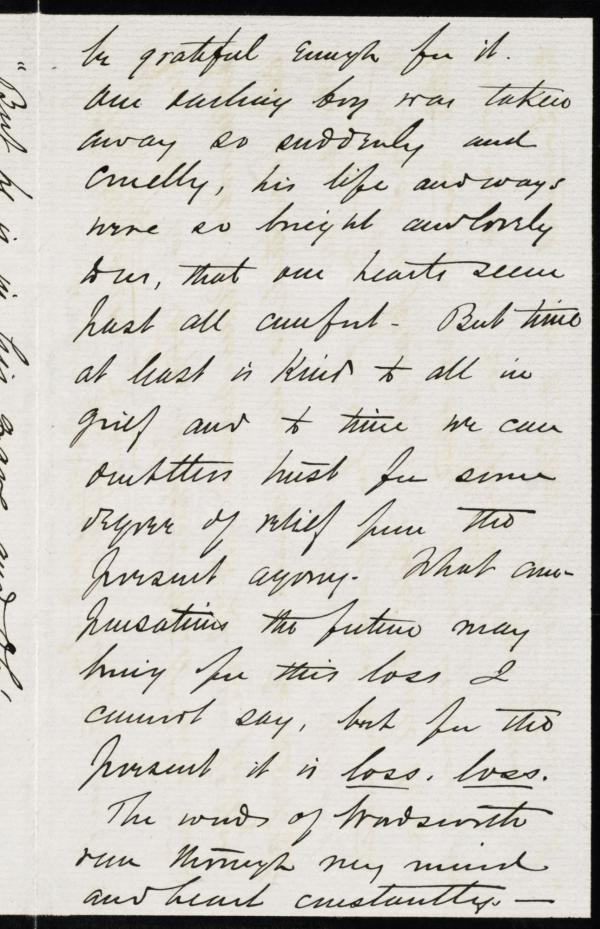 be grateful enough for it.
Our darling boy was taken
away so suddenly and
cruelly, his life and ways
were so bright and lovely
to us, that our hearts seem
past all comfort - But time
at least is kind to all in
grief and to time we can
doubtless trust for some
degree of relief from the
present agony. What com-
pensations the future may
bring for this loss I
cannot say, but for the
present it is loss. loss.
The words of Wordsworth
run through my mind
and heart constantly. —
"But he is in his grave and oh!